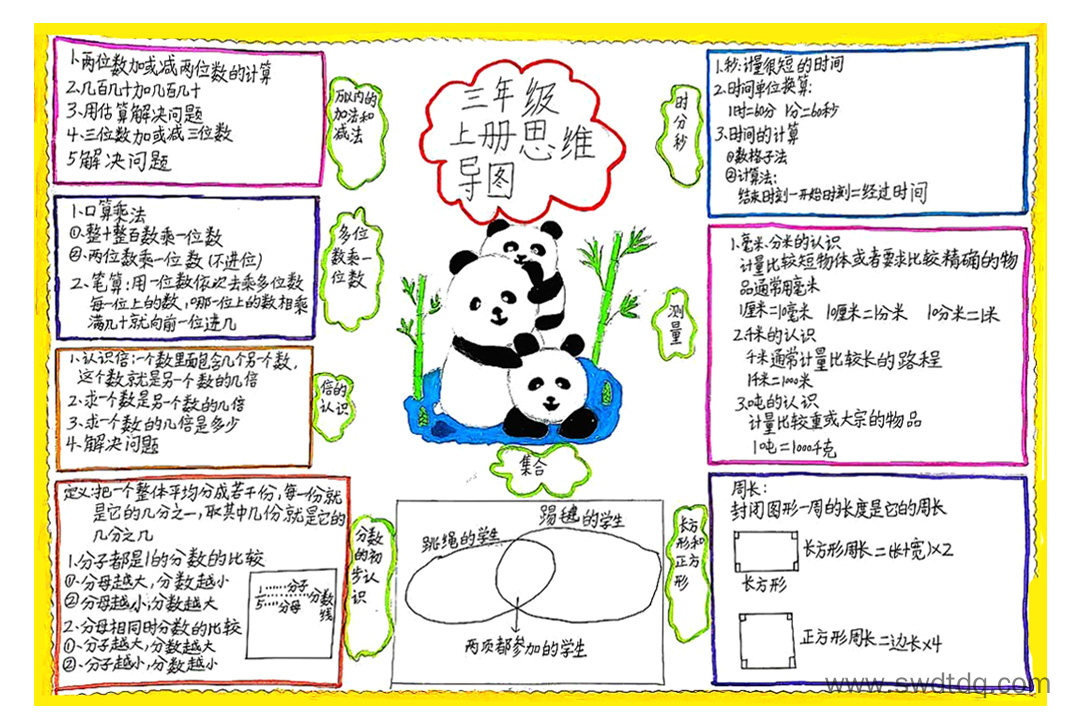 三年级
上册思维
导图
万以内的
加法和
减法
1.两位数加或减两位数的计算
2.几百几十加几百几十
3.用估算解决问题
4.三位数加或减三位数
5解决问题
多位
数乘一
位数
1.口算乘法
①.整十整百数乘一位数
②.两位数乘一位数(不进位)
2.笔算:用一位数依次去乘多位数
每一位上的数,哪一位上的数相乘
满几十就向前一位进几
倍的
认识
1.认识倍:一个数里面包含几个另一个数,
这个数就是另一个数的几倍
2.求一个数是另一个数的几倍
3.求一个数的几倍是多少
4.解决问题
分数
的初
步认
识
定义:把一个整体平均分成若干份,每一份就
是它的几分之一,取其中几份就是它的
几分之几
1.分子都是1的分数的比较
①.分母越大,分数越小
②分母越小,分数越大
2.分母相同时分数的比较
①.分子越大,分数越大
②.分子越小,分数越小
1……分子
……分数线
5……分母
集合
跳绳的学生
踢毽的学生
两项都参加的学生
时
分
秒
1.秒:计量很短的时间
2.时间单位换算:
1时=60分 1分=60秒
3.时间的计算
①数格子法
②计算法:
结束时刻-开始时刻=经过时间
测
量
1.毫米.分米的认识
计量比较短物体或者要求比较精确的物
品通常用毫米
1厘米=10毫米 10厘米=1分米 10分米=1米
2.千米的认识
千米通常计量比较长的路程
1千米=1000米
3.吨的认识
计量比较重或大宗的物品
1吨=1000千克
长方
形和
正方
形
周长:
封闭图形一周的长度是它的周长
长方形周长=(长+宽)×2
长方形
正方形周长=边长×4
www.swdtdq.com